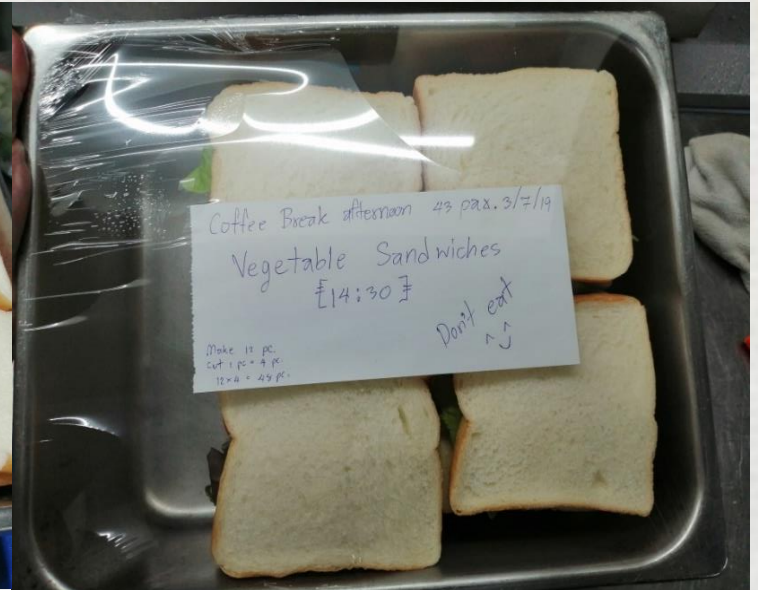 Coffee Break afternoon 43 pax. 3/7/19
Vegetable Sandwiches
[14:30]
Don't eat
^^
Make 12 pc.
Cut 1 pc = 4 pc.
12x4 = 48 pc.